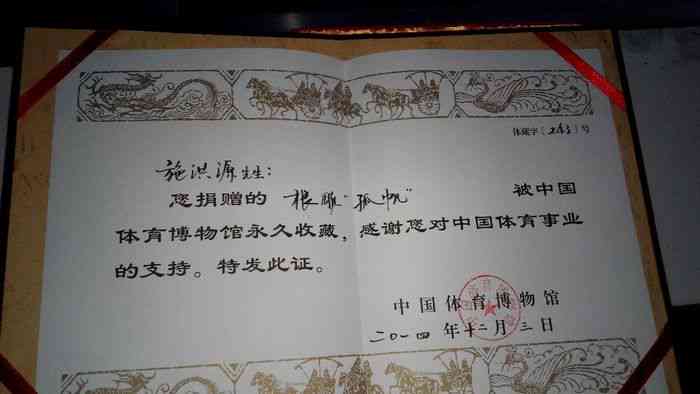 体藏字〔 〕号
施洪源先生：
您捐赠的 根雕“孤帆” 被中国
体育博物馆永久收藏，感谢您对中国体育事业
的支持。特发此证。
中国体育博物馆
二〇一四年十二月三日